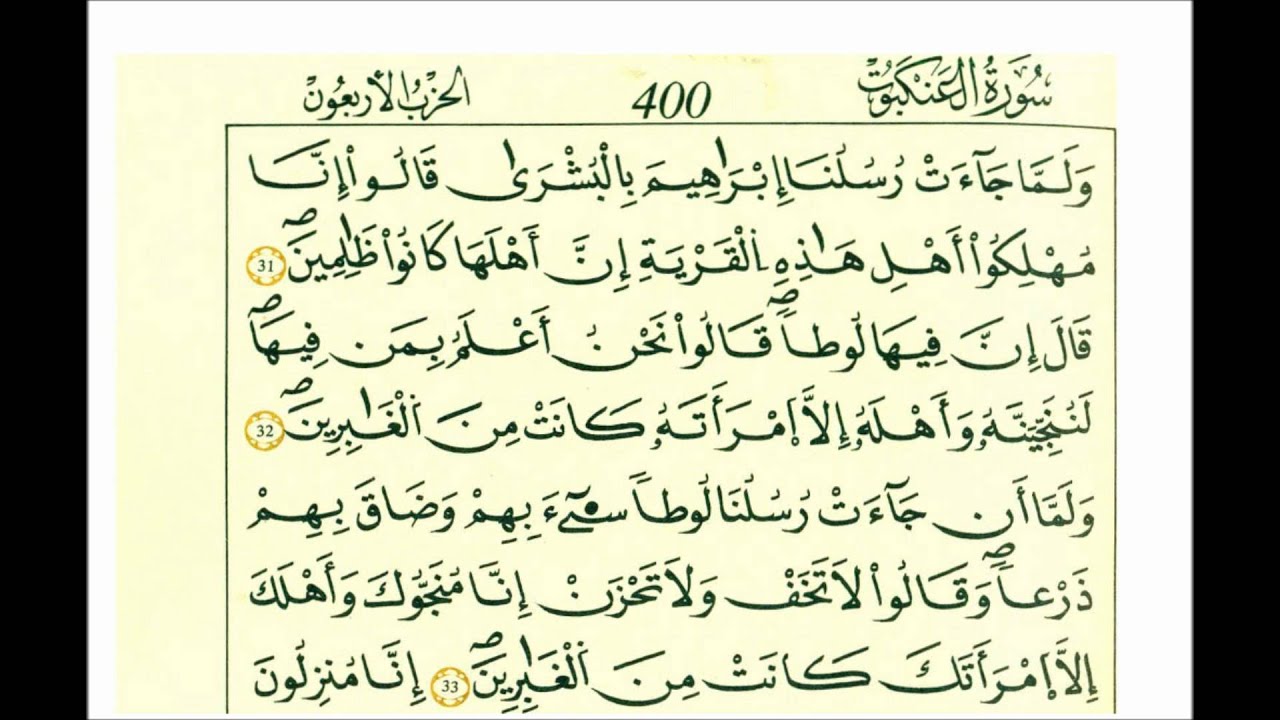 سُورَةُ الْعَنكَبُوتِ 400 الحِزْبُ الأَرْبَعُونْ
وَلَمَّا جَآءَتْ رُسُلُنَا إِبْرَٰهِيمَ بِالْبُشْرَىٰ قَالُوٓاْ إِنَّا
مُهْلِكُوٓاْ أَهْلِ هَٰذِهِ اِ۬لْقَرْيَةِ إِنَّ أَهْلَهَا كَانُواْ ظَٰلِمِينَۖ 31
قَالَ إِنَّ فِيهَا لُوطاٗۖ قَالُواْ نَحْنُ أَعْلَمُ بِمَن فِيهَاۖ
لَنُنَجِّيَنَّهُۥ وَأَهْلَهُۥٓ إِلَّا اَ۪مْرَأَتَهُۥ كَانَتْ مِنَ اَ۬لْغَٰبِرِينَۖ 32
وَلَمَّآ أَن جَآءَتْ رُسُلُنَا لُوطاٗ سِےٓءَ بِهِمْ وَضَاقَ بِهِمْ
ذَرْعاٗۖ وَقَالُواْ لَا تَخَفْ وَلَا تَحْزَنْ إِنَّا مُنَجُّوكَ وَأَهْلَكَ
إِلَّا اَ۪مْرَأَتَكَ كَانَتْ مِنَ اَ۬لْغَٰبِرِينَۖ 33 إِنَّا مُنزِلُونَ